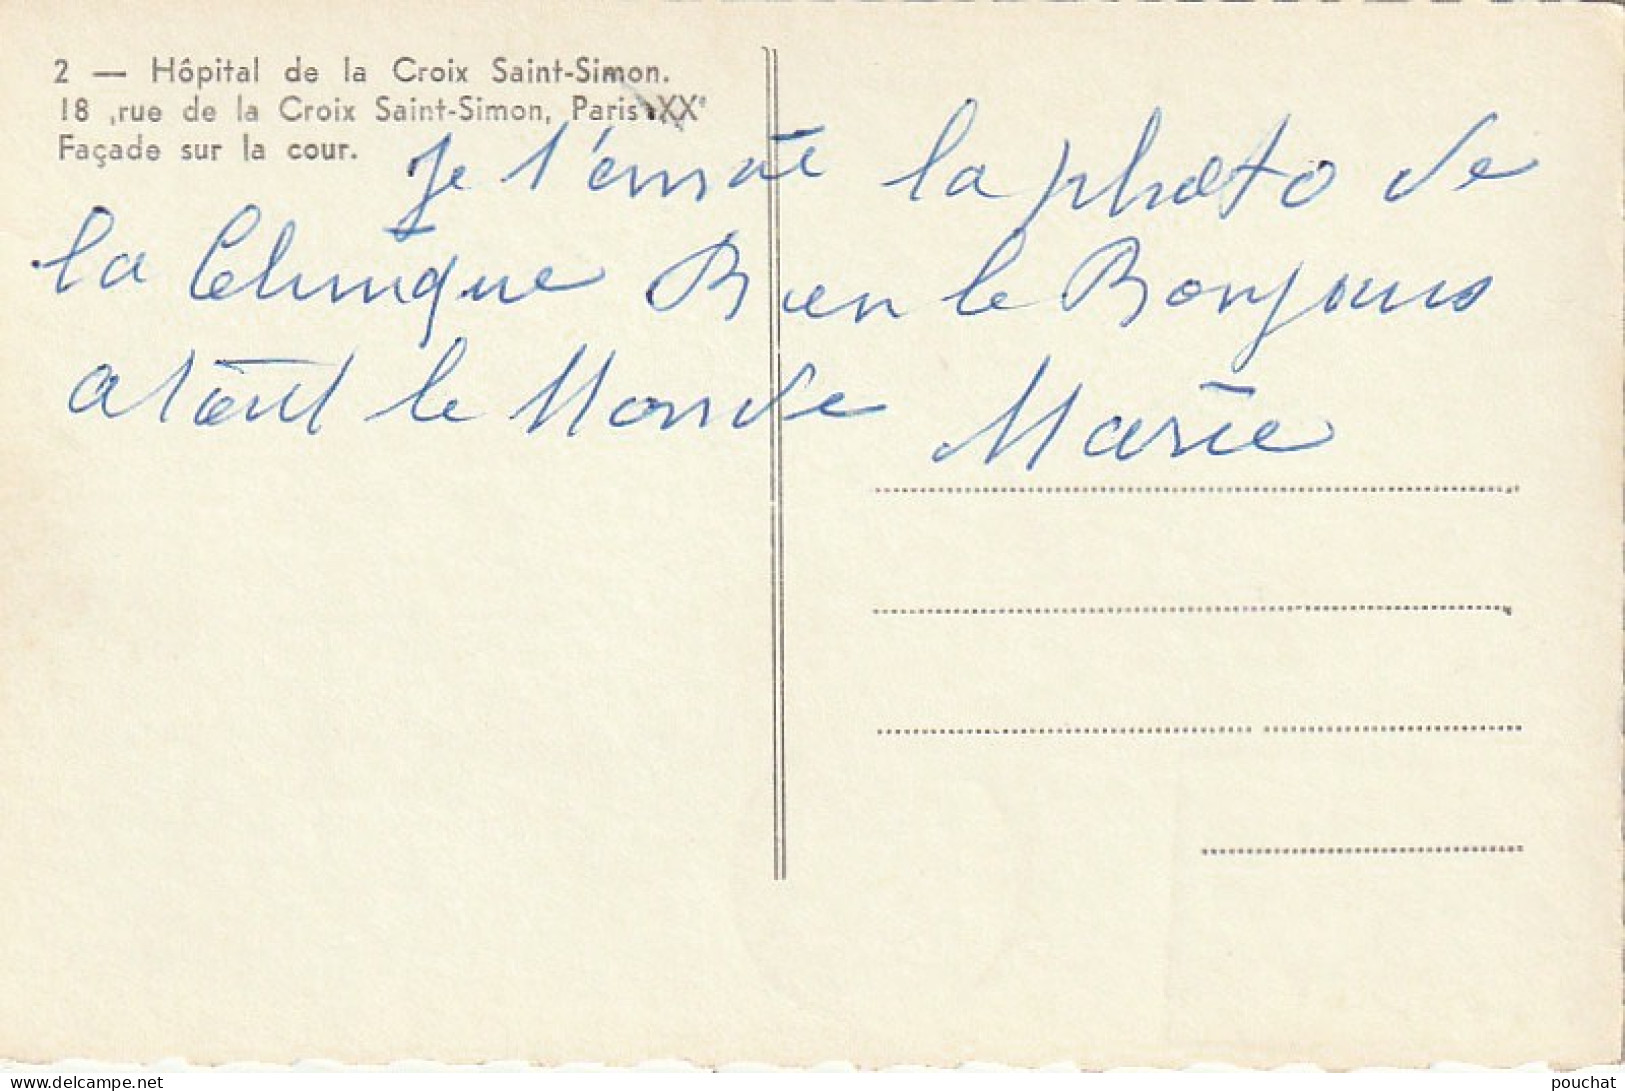 2 — Hôpital de la Croix Saint-Simon.
18 ,rue de la Croix Saint-Simon, Paris XXe
Façade sur la cour.
Je t'envoie la photo de
la Clinique Bien le Bonjour
a tout le Monde Marie
delcampe.net
pouchat